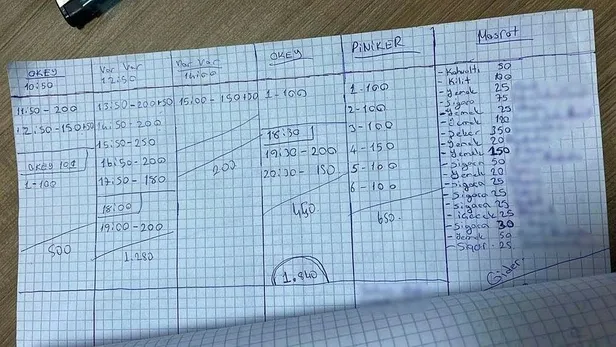 OKEY
10:50
11:50-200
12:50-150+50
OKEY 101
1-100
500
Var Var
12:50
13:50-200+50
14:50-200
15:50-250
16:50-200
17:50-180
18:00
19:00-200
1.280
Var Var
14:00
15:00-150+50
200
OKEY
1-100
18:30
19:30-200
20:30-150
450
1.840
PiNiKER
1-100
2-100
3-100
4-150
5-100
6-100
650
Masraf
- Kahvaltı 50
- Kilit 100
- Yemek 25
- Sigara 75
- Yemek 25
- Yemek 180
- Şeker 350
- Yemek 20
- Yemek 150
- Sigara 50
- Yemek 20
- Sigara 25
- Sigara 25
- Sigara 25
- içecek 25
- Sigara 30
- Yemek 50
- Sigar 25
Gider